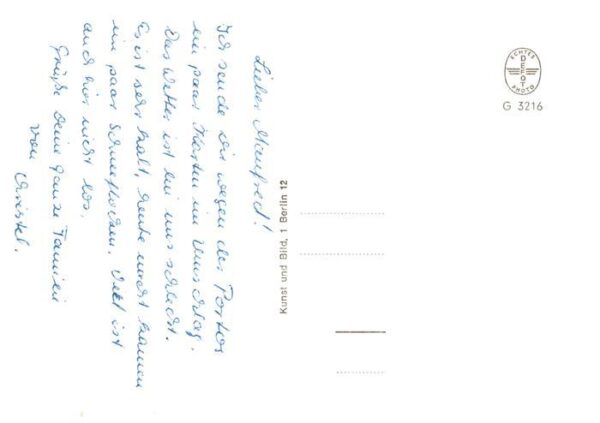 Lieber Manfred!
Ich sende dir wegen des Portos
ein paar Karten im Umschlag.
Das Wetter ist bei uns schlecht.
Es ist sehr kalt, heute morst kamen
ein paar Schneeflocken. Viel ist
auch hier nicht los.
Grüße Deine ganze Familie
von Christel.
Kunst und Bild, 1 Berlin 12
ECHTES
DEFOT
PHOTO
G 3216